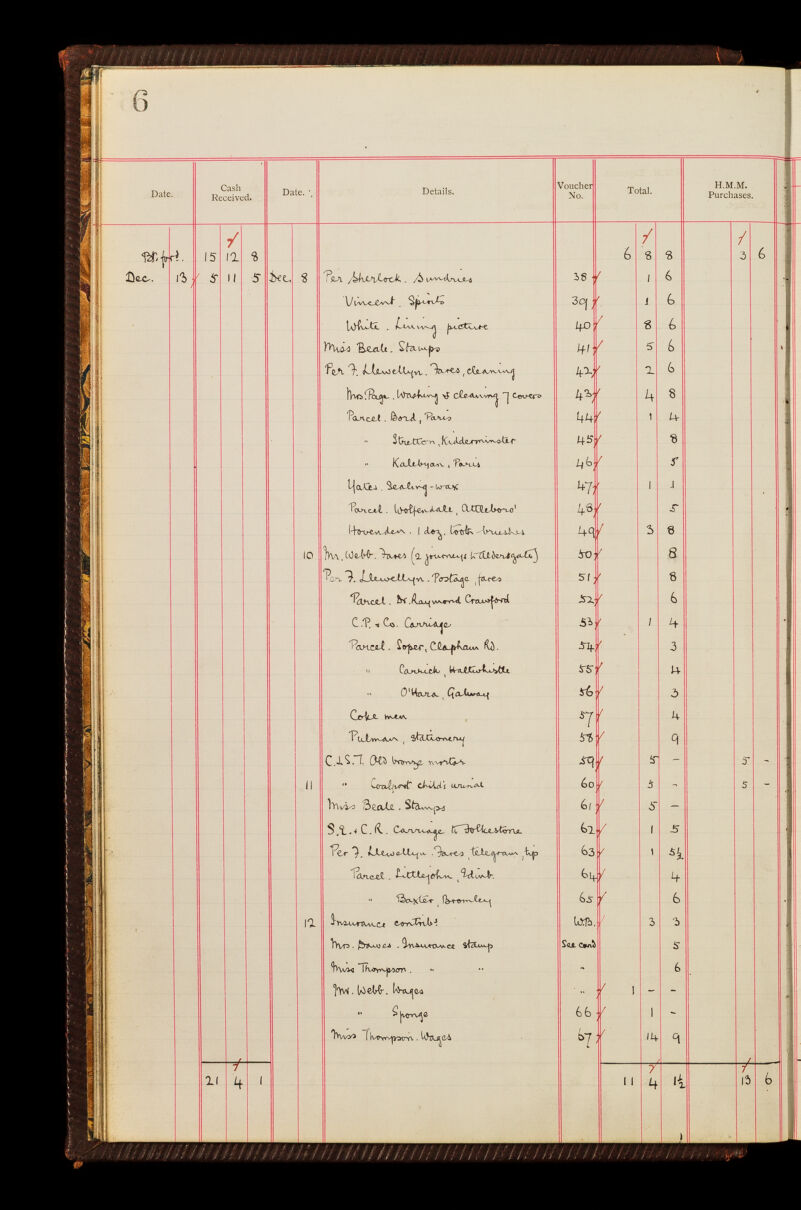 6
Date. Cash Received. Date. Details. Voucher No. Total. H.M.M. Purchases.
Bt. ford. 15 12 8 6 8 8 3 6
Dec. 13 5 11 5 Dec. 8 Per Sherlock. Sundries 38 1 6
Vincent. Spirits 39 1 6
White. Lining picture 40 8 6
Miss Beale. Stamps 41 5 6
Per F. Llewellyn. Fares, cleaning 42 2 6
Mrs. Page. Washing & cleaning 7 covers 43 4 8
Parcel. Bord, Paris 44 1 4
" Stretton, Kidderminster 45 8
" Kalebyan, Paris 46 5
Yates. Sealing-wax 47 1 1
Parcel. Wolfendale, Attleboro' 48 5
Hovenden. 1 doz. tooth-brushes 49 3 8
10 Mr. Webb. Fares (2 journeys to Aldersgate) 50 8
Per F. Llewellyn. Postage, fares 51 8
Parcel. Dr. Raymond Crawford 52 6
C.P. & Co. Carriage 53 1 4
Parcel. Soper, Clapham Rd. 54 3
" Carrick, Haltwhistle 55 4
" O'Hara, Galway 56 3
Coke men 57 4
Pulman, stationery 58 9
C.I.S.7. Old bronze mortar 59 5 - 5 -
11 " Coalport child's urinal 60 5 - 5 -
Miss Beale. Stamps 61 5 -
S.E. & C.R. Carriage to Folkestone 62 1 5
Per F. Llewellyn. Fares, telegram, tip 63 1 5½
Parcel. Littlejohn, Edinb. 64 4
" Baxter, Bromley 65 6
12 Insurance contrib? W.B. 3 3
Mrs. Dawes. Insurance stamp See Card 5
Miss Thompson. " " " 6
Mr. Webb. Wages " 1 - -
" Sponge 66 1 -
Miss Thompson. Wages 67 14 9
21 4 1 11 4 1½ 13 6